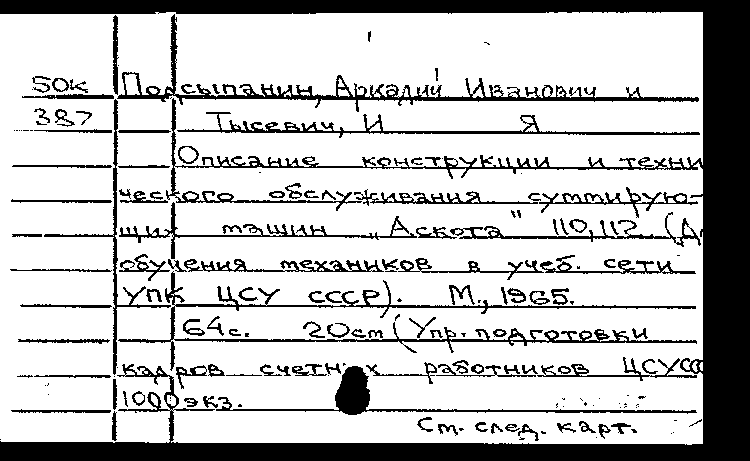 50к Подсыпанин, Аркадий Иванович и
387 Тысевич, И Я
Описание конструкции и техни
ческого обслуживания суммирую-
щих машин „Аскота" 110,112. (Д
обучения механиков в учеб. сети
УПК ЦСУ СССР). М., 1965.
64с. 20см (Упр. подготовки
кадров счетных работников ЦСУСС
1000 экз.
См. след. карт.